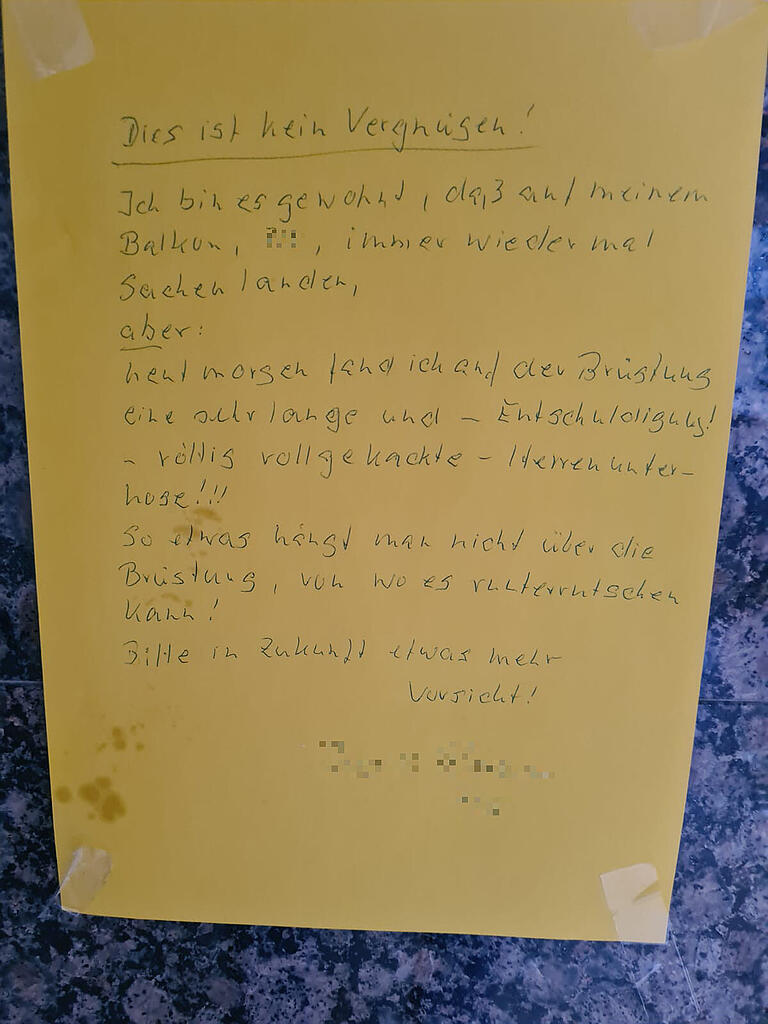 Dies ist kein Vergnügen!
Ich bin es gewohnt, daß auf meinem
Balkon, , immer wieder mal
Sachen landen,
aber:
heut morgen fand ich auf der Brüstung
eine sehr lange und – Entschuldigung!
– völlig vollgekackte – Herrenunter-
hose!!!
So etwas hängt man nicht über die
Brüstung, von wo es runterrutschen
kann!
Bitte in Zukunft etwas mehr
Vorsicht!